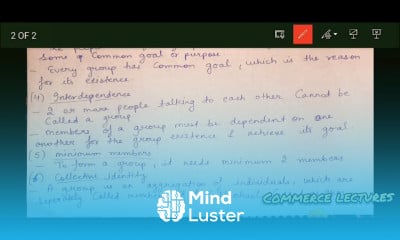 2 OF 2
Some of Common goal or purpose
- Every group has Common goal, which is the reason
for its existence.
(4) Interdependence
- 2 or more people talking to each other Cannot be
Called a group
- members of a group must be dependent on one
another for the group existence & achieve its goal
(5) minimum members
- To form a group, it needs minimum 2 members
(6) Collective identity
A group is an aggregation of individuals, which are
separately Called members
COMMERCE LECTURES
Mind
Luster